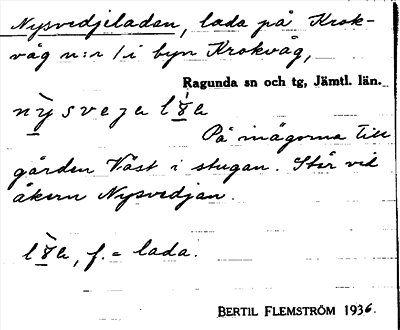 Nysvedjeladan, lada på Krok-
våg n:r 1 i byn Krokvåg,
Ragunda sn och tg, Jämtl. län.
På inägorna till
gården Väst i stugan. Står vid
åkern Nysvedjan.
f. = lada.
BERTIL FLEMSTRÖM 1936.